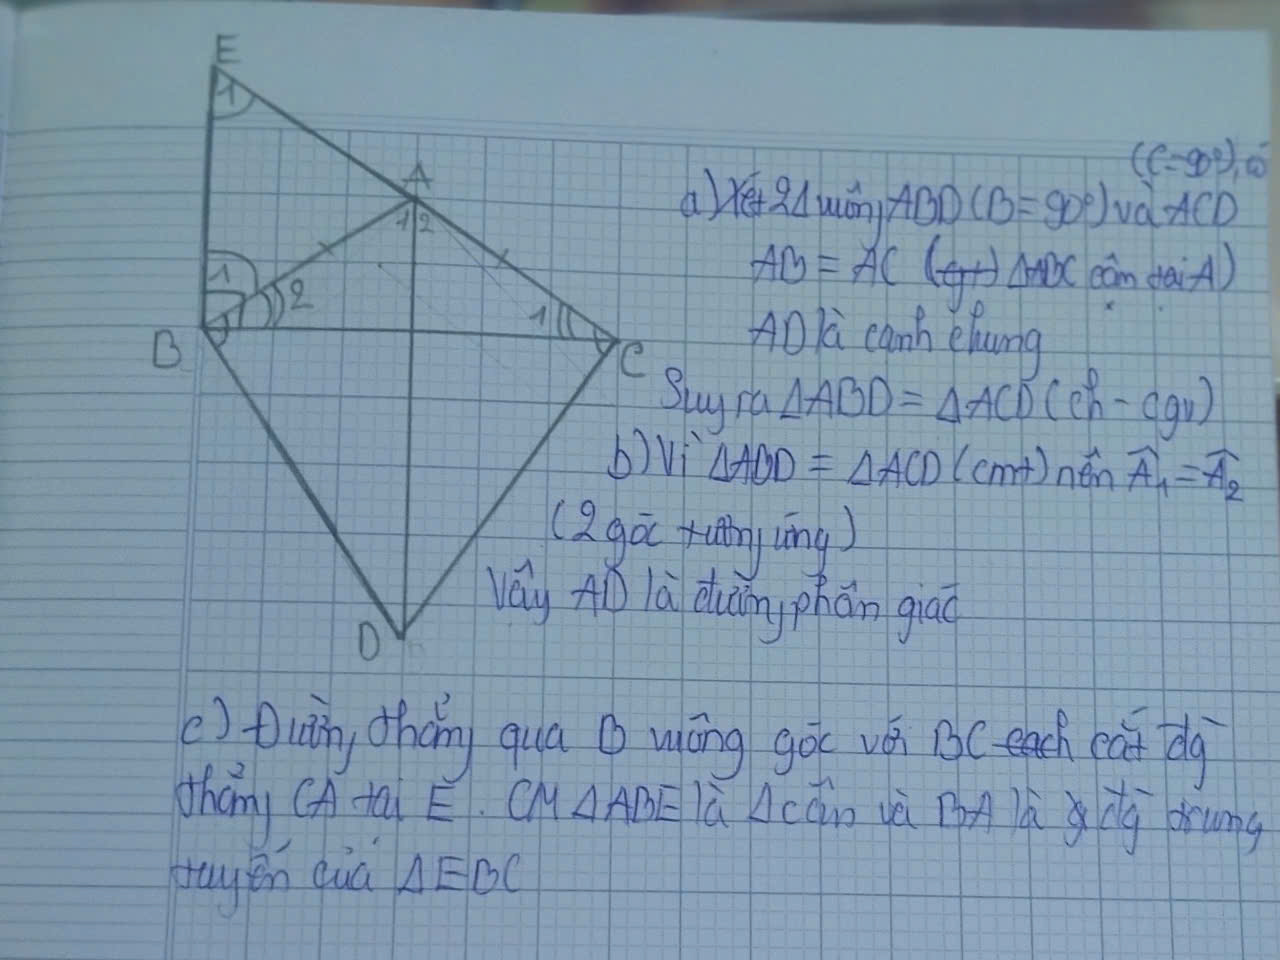 E
1
A
1 2
1
2
1
B
C
D
(C=90°), có
a) Xét 2Δ vuông ABD (B=90°) và ACD
AB = AC (gt) ΔABC cân tại A)
AD là cạnh chung
Suy ra ΔABD = ΔACD (ch - cgv)
b) Vì ΔABD = ΔACD (cmt) nên Â₁ = Â₂
(2 góc tương ứng)
Vậy AD là đường phân giác
c) Đường thẳng qua B vuông góc với BC cach cắt đg
thẳng CA tại E. CM ΔABE là Δ cân và BA là đg trung
tuyến của ΔEBC